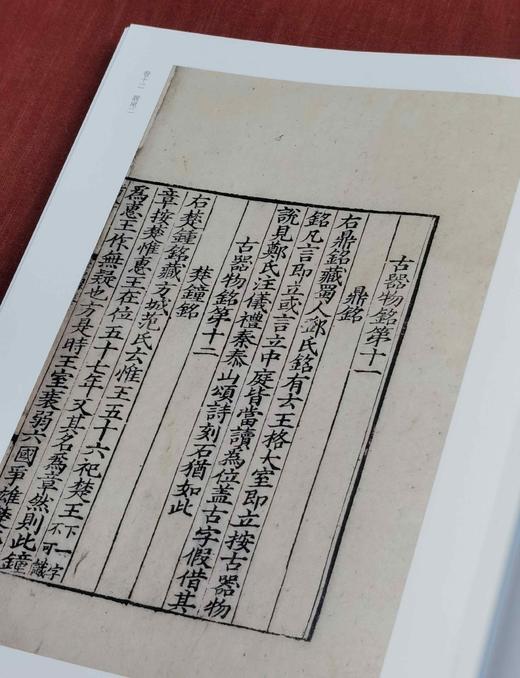 古器物銘第十一
鼎銘
右鼎銘藏蜀人鄧氏銘有云王格大室即立按古器物
銘凡言即立或言立中庭皆當讀為位蓋古字假借其
說見鄭氏注儀禮秦泰山頌詩刻石猶如此
古器物銘第十二
楚鐘銘
右楚鐘銘藏方城范氏云惟王五十六祀楚王下一字不可識
章按楚惟惠王在位五十七年又其名為章然則此鐘
為惠王作無疑也方是時王室衰弱六國爭雄楚
卷十二